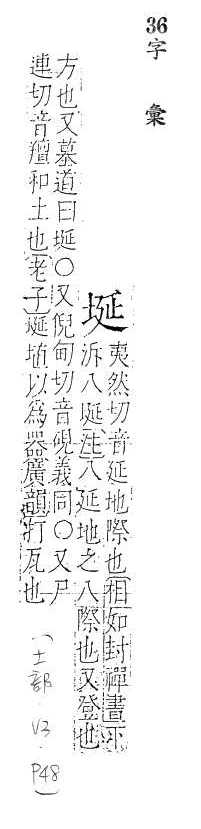 36
字彙
埏
夷然切音延地際也相如封禪書下
泝八埏注八延地之八際也又登也
方也又墓道曰埏○又倪甸切音硯義同○又尸
連切音羶和土也老子埏埴以為器廣韻打瓦也
(土部·V3·P48)